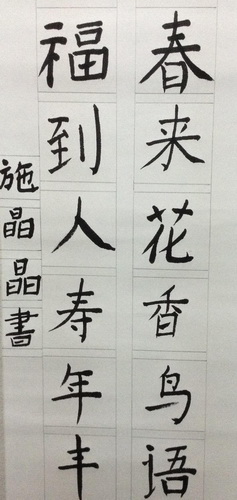 春来花香鸟语
福到人寿年丰
施晶晶書